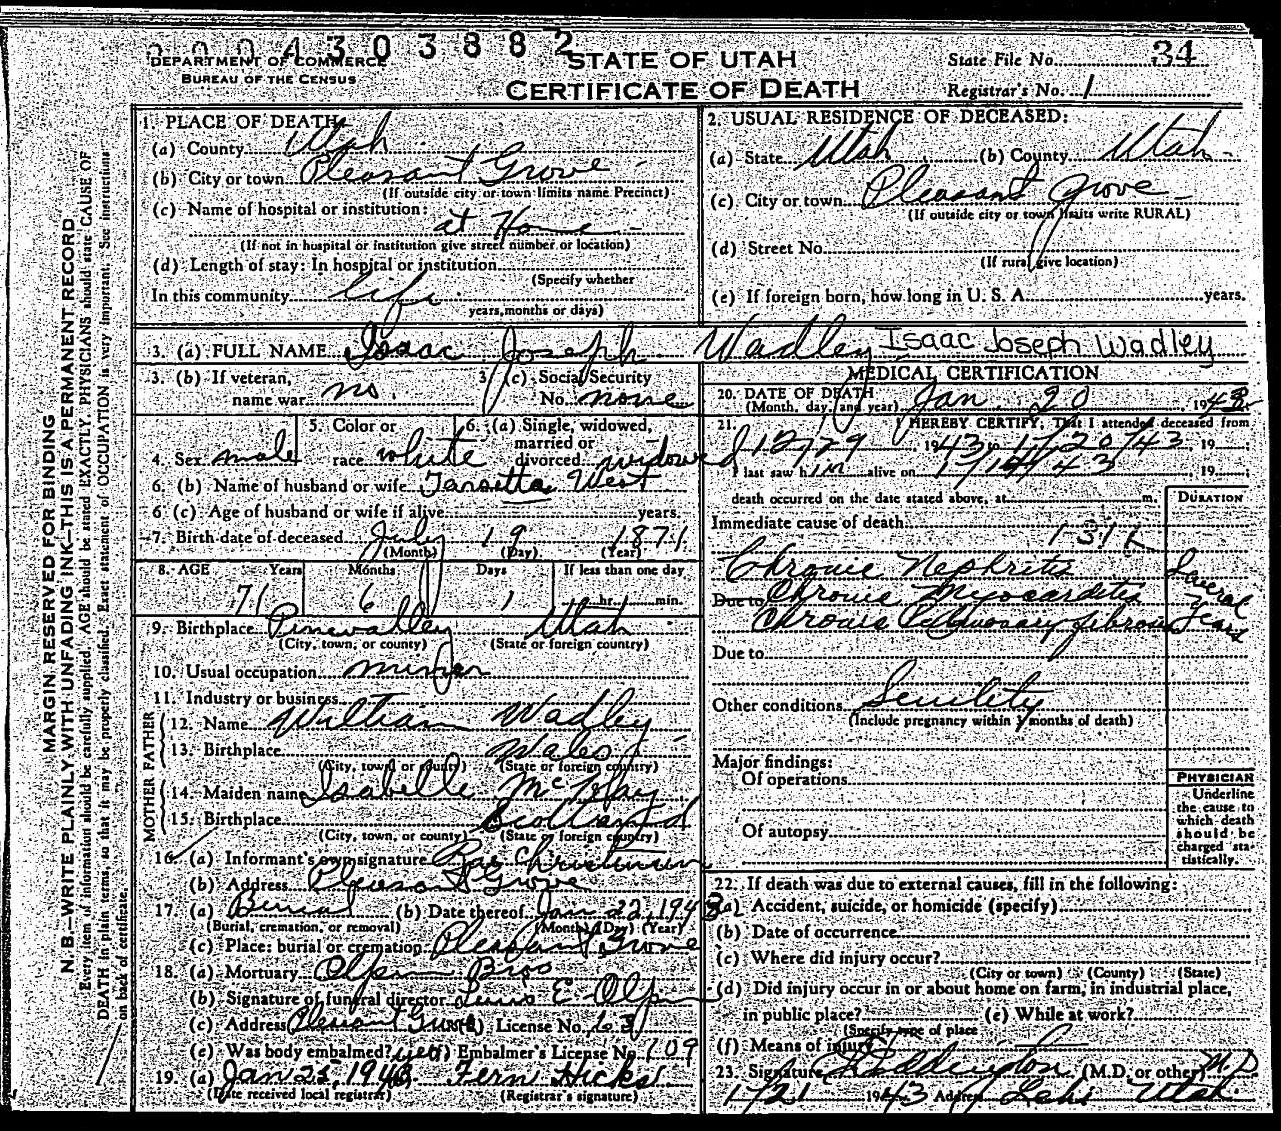 2 0 0 4 3 0 3 8 8 2
DEPARTMENT OF COMMERCE
BUREAU OF THE CENSUS
STATE OF UTAH
CERTIFICATE OF DEATH
State File No. 34
Registrar's No. 1
MARGIN RESERVED FOR BINDING
N. B.—WRITE PLAINLY WITH UNFADING INK—THIS IS A PERMANENT RECORD
Every item of information should be carefully supplied. AGE should be stated EXACTLY. PHYSICIANS should state CAUSE OF
DEATH in plain terms, so that it may be properly classified. Exact statement of OCCUPATION is very important. See instructions
on back of certificate.
1. PLACE OF DEATH:
(a) County Utah
(b) City or town Pleasant Grove
(If outside city or town limits name Precinct)
(c) Name of hospital or institution:
at Home
(If not in hospital or institution give street number or location)
(d) Length of stay: In hospital or institution
(Specify whether
In this community life
years, months or days)
2. USUAL RESIDENCE OF DECEASED:
(a) State Utah (b) County Utah
(c) City or town Pleasant Grove
(If outside city or town limits write RURAL)
(d) Street No.
(If rural give location)
(e) If foreign born, how long in U. S. A. years.
3. (a) FULL NAME Isaac Joseph Wadley Isaac Joseph Wadley
3. (b) If veteran,
name war no
3. (c) Social Security
No. none
4. Sex male
5. Color or
race white
6. (a) Single, widowed,
married or
divorced widowed
6. (b) Name of husband or wife West
6 (c). Age of husband or wife if alive years.
7. Birth date of deceased July 19 1871
(Month) (Day) (Year)
8. AGE Years Months Days If less than one day
71 6 1 hr. min.
9. Birthplace Pinevalley Utah
(City, town, or county) (State or foreign country)
10. Usual occupation miner
11. Industry or business
FATHER
12. Name William Wadley
13. Birthplace Wales
(City, town or county) (State or foreign country)
MOTHER
14. Maiden name Isabelle McKay
15. Birthplace Scotland
(City, town, or county) (State or foreign country)
16. (a) Informant's own signature Rae Christensen
(b) Address Pleasant Grove
17. (a) Burial (b) Date thereof Jan 22, 1943
(Burial, cremation, or removal) (Month) (Day) (Year)
(c) Place: burial or cremation Pleasant Grove
18. (a) Mortuary Olpin Bros
(b) Signature of funeral director E. Olpin
(c) Address Pleasant Grove (d) License No. 63
(e) Was body embalmed? yes (f) Embalmer's License No. 109
19. (a) Jan 23, 1943 Fern Hicks
(Date received local registrar) (Registrar's signature)
MEDICAL CERTIFICATION
20. DATE OF DEATH
(Month, day, and year) Jan 20 1943
21. I HEREBY CERTIFY, That I attended deceased from
12/29 1943 to 1/20/43, 19
I last saw him alive on 1/19/43, 19
death occurred on the date stated above, at m.
DURATION
Immediate cause of death
131
Chronic Nephritis
Due to Chronic Myocarditis
Chronic Pulmonary fibrosis
Several years
Due to
Other conditions Senility
(Include pregnancy within 3 months of death)
Major findings:
Of operations
Of autopsy
PHYSICIAN
Underline
the cause to
which death
should be
charged sta-
tistically.
22. If death was due to external causes, fill in the following:
(a) Accident, suicide, or homicide (specify)
(b) Date of occurrence
(c) Where did injury occur?
(City or town) (County) (State)
(d) Did injury occur in or about home on farm, in industrial place,
in public place? (e) While at work?
(Specify type of place
(f) Means of injury
23. Signature Eddington (M.D. or other) M.D.
1/21 1943 Address Lehi Utah